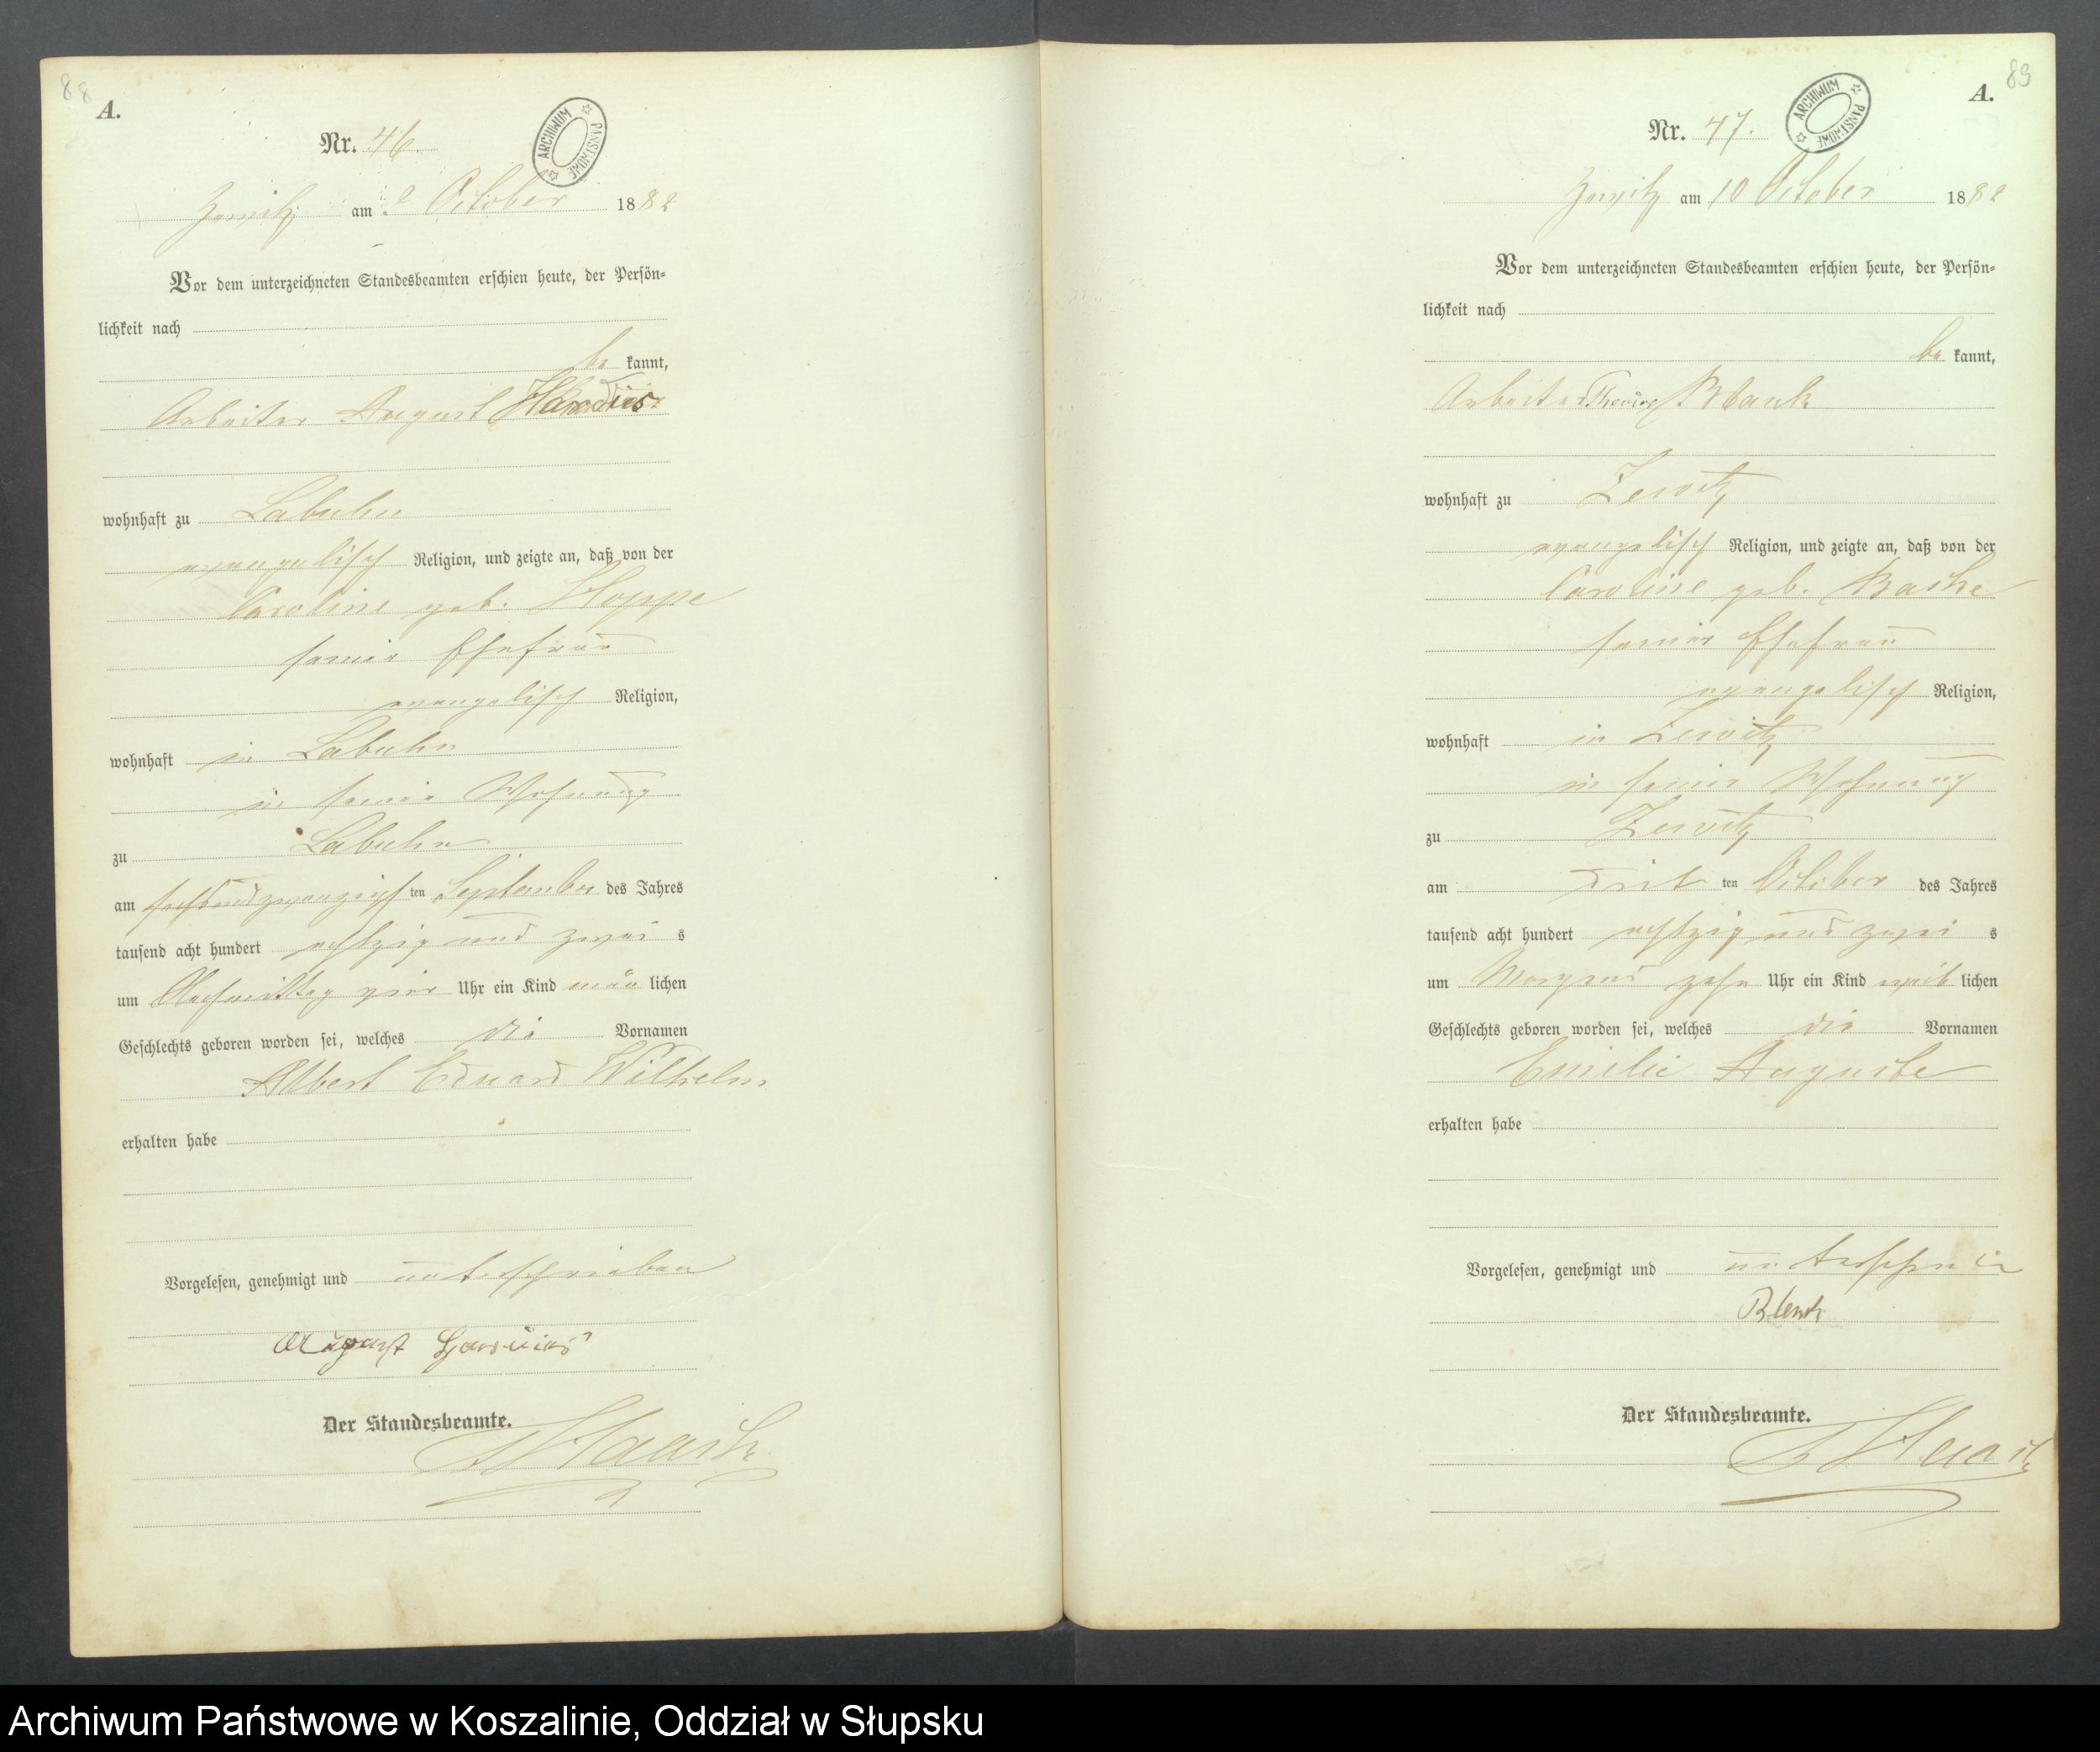 88
A.
ARCHIWUM PAŃSTWOWE
Nr. 46.
Zewitz am 2 October 1882
Vor dem unterzeichneten Standesbeamten erschien heute, der Persön-
lichkeit nach
be kannt,
Arbeiter August
wohnhaft zu Labuhn
evangelisch Religion, und zeigte an, daß von der
Caroline geb. Hoppe
seiner Ehefrau
evangelisch Religion,
wohnhaft in Labuhn
in seiner Wohnung
zu Labuhn
am sechsundzwanzigsten September des Jahres
tausend acht hundert achtzig und zwei s
um Nachmittag vier Uhr ein Kind män lichen
Geschlechts geboren worden sei, welches die Vornamen
Albert Eduard Wilhelm
erhalten habe
Vorgelesen, genehmigt und unterschrieben
August
Der Standesbeamte.
Haack
89
A.
ARCHIWUM PAŃSTWOWE
Nr. 47.
Zewitz am 10 October 1882
Vor dem unterzeichneten Standesbeamten erschien heute, der Persön-
lichkeit nach
be kannt,
Arbeiter
wohnhaft zu Zewitz
evangelisch Religion, und zeigte an, daß von der
Caroline geb.
seiner Ehefrau
evangelisch Religion,
wohnhaft in Zewitz
in seiner Wohnung
zu Zewitz
am drit ten October des Jahres
tausend acht hundert achtzig und zwei s
um Morgens zehn Uhr ein Kind weib lichen
Geschlechts geboren worden sei, welches die Vornamen
Emilie Auguste
erhalten habe
Vorgelesen, genehmigt und
Der Standesbeamte.
Haack
Archiwum Państwowe w Koszalinie, Oddział w Słupsku